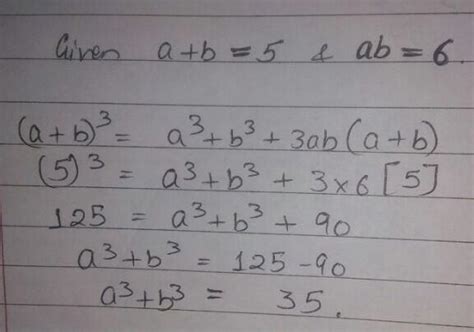 Given a+b=5 & ab=6.
(a+b)³ = a³+b³+3ab(a+b)
(5)³ = a³+b³+3×6[5]
125 = a³+b³+90
a³+b³ = 125-90
a³+b³ = 35.